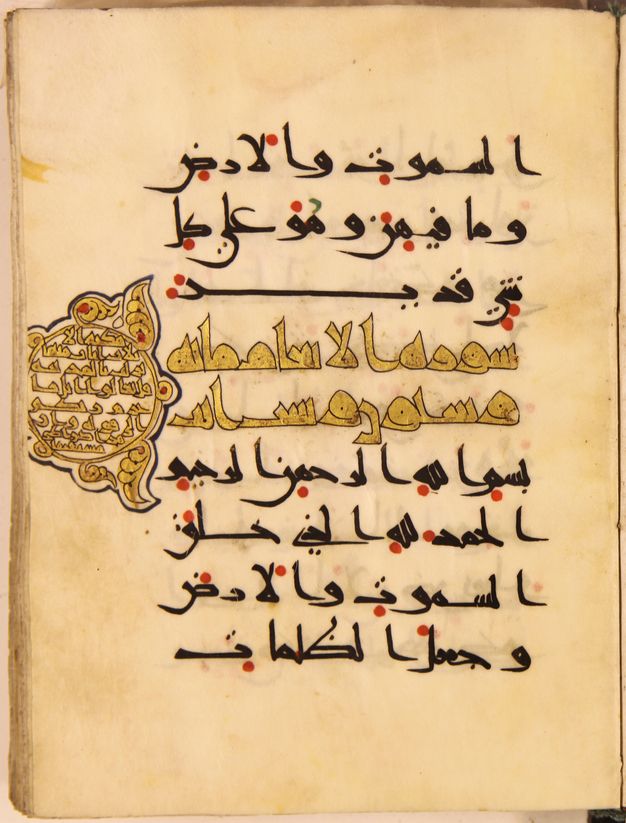 السموت والارض
وما فيهن وهو على كل
شى قدير
سورة الانعام مائة
وستون وست ايات
بسم الله الرحمن الرحيم
الحمد لله الذي خلق
السموت والارض
وجعل الظلمات